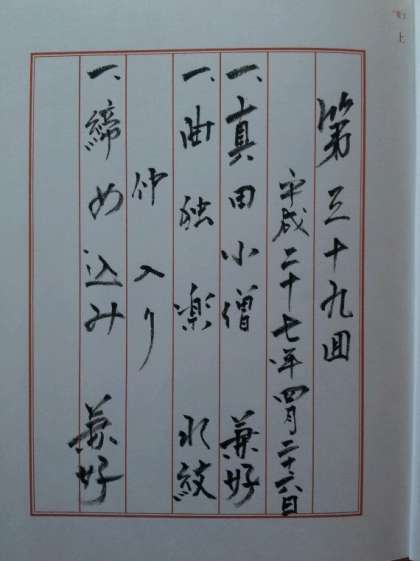 第三十九回
平成二十七年四月二十六日
一、真田小僧 兼好
一、曲独楽 水紋
仲入り
一、締め込み 兼好
上